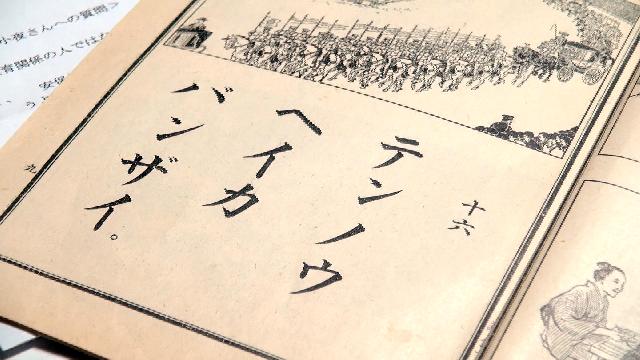 十六
テンノウ
ヘイカ
バンザイ。
九
小夜さんへの質問＞
育関係の人ではな